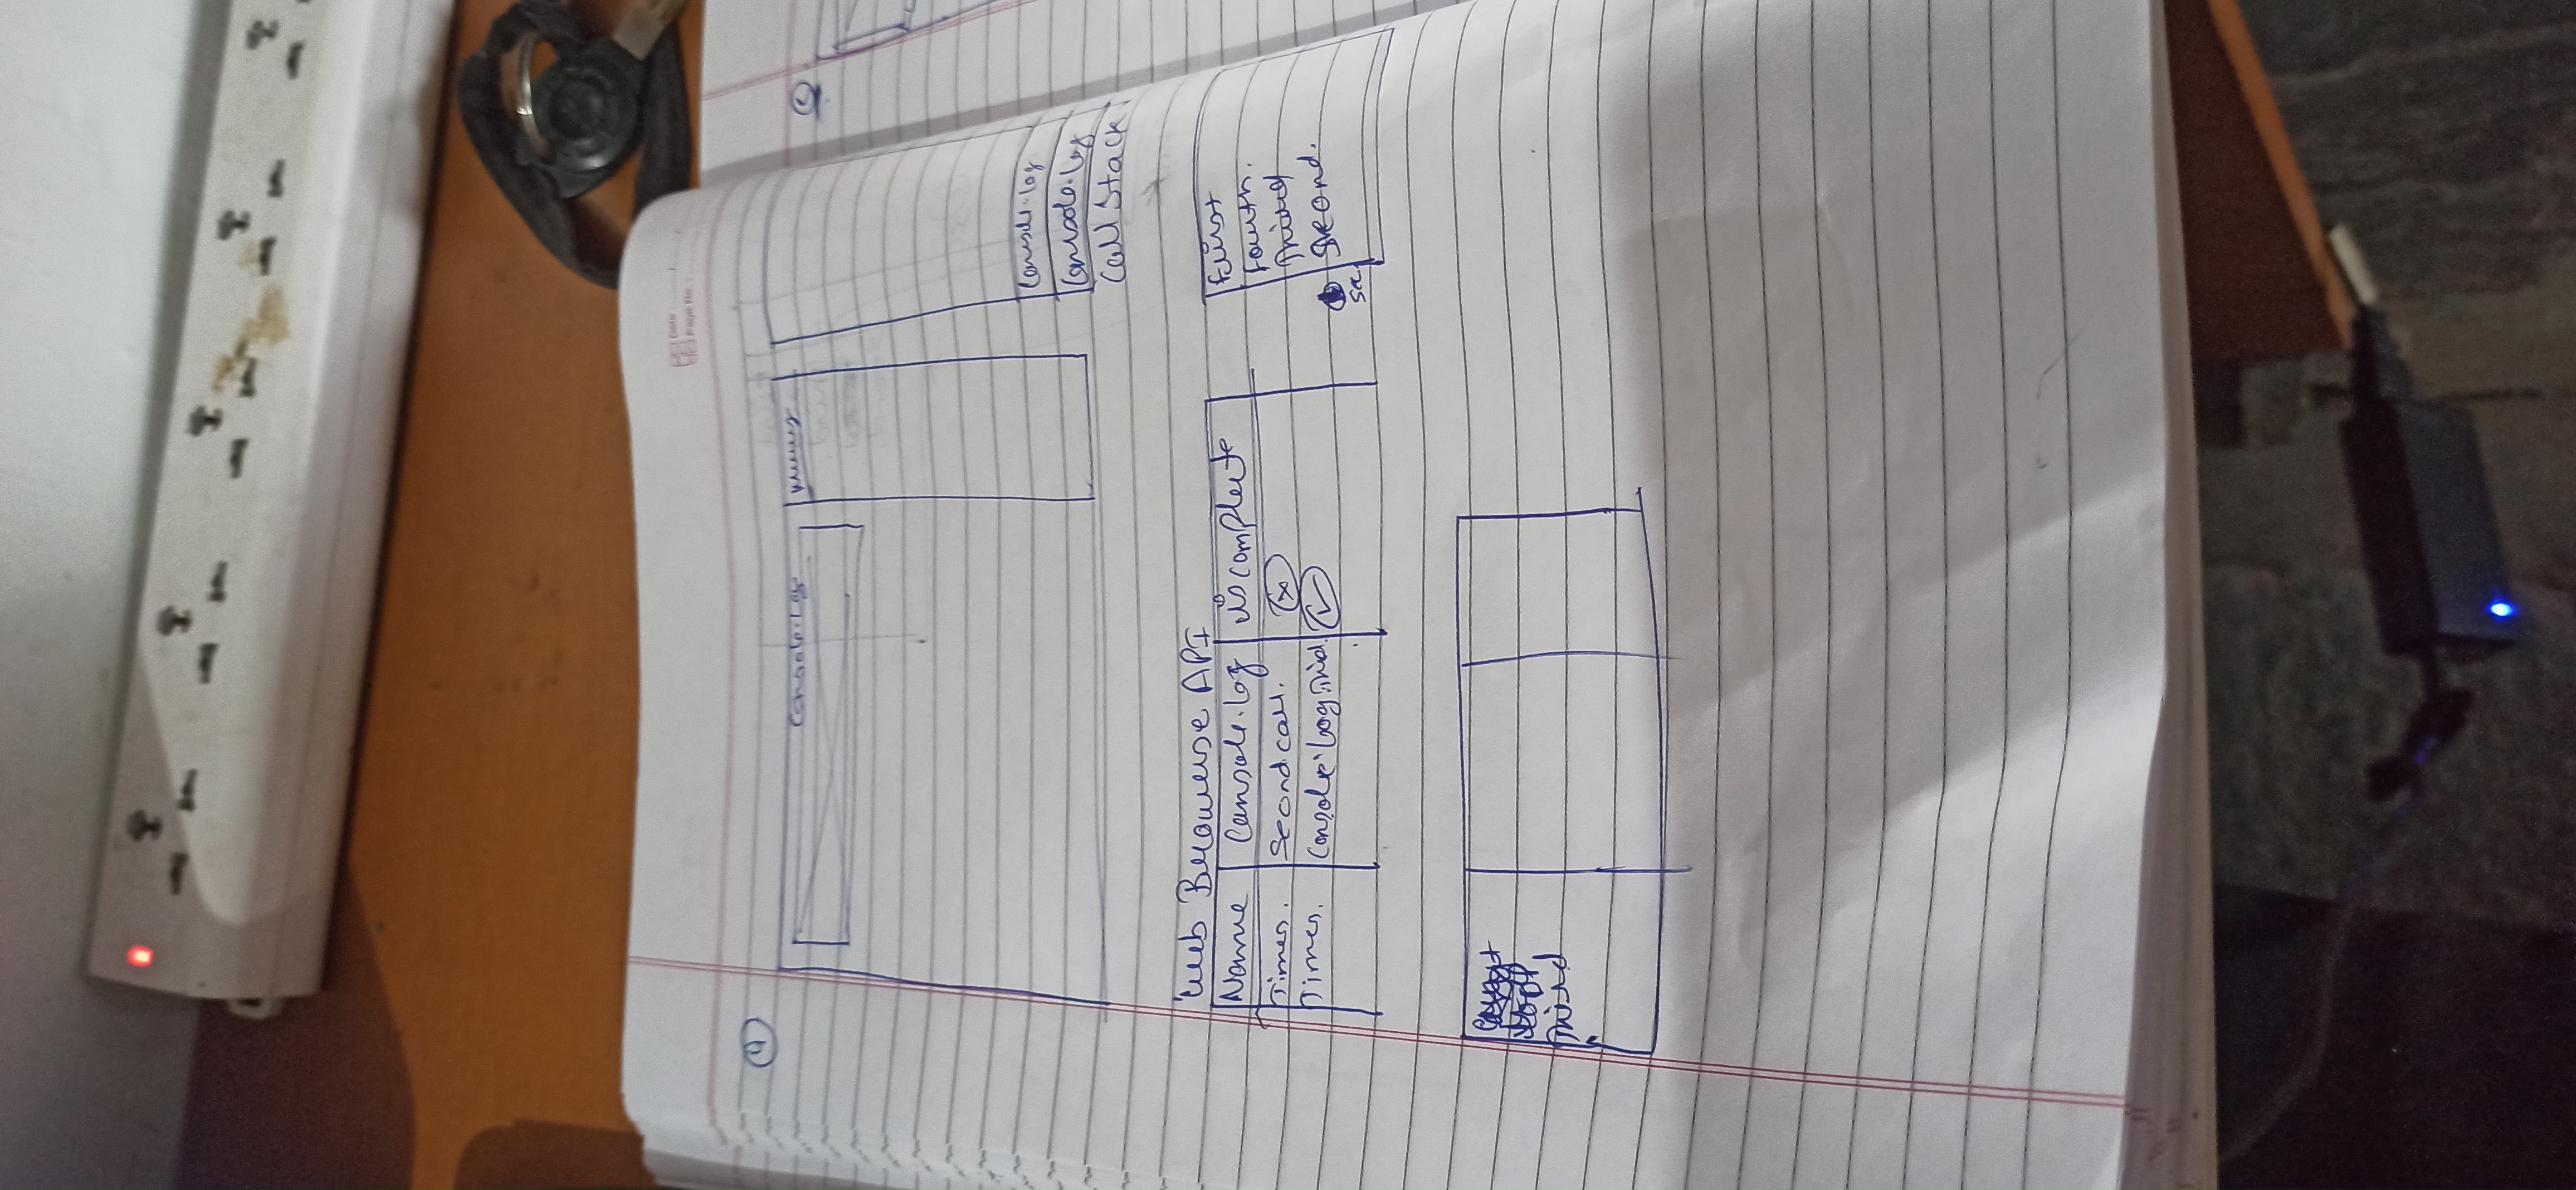 Date
Page No.
4
Console.log
Memory
Console.log
Console.log
Call Stack
Web Browser API
Name Console.log is complete
Timer. Second call.
Timer. Console.log Third
First
Fourth.
Third
Second.
Third